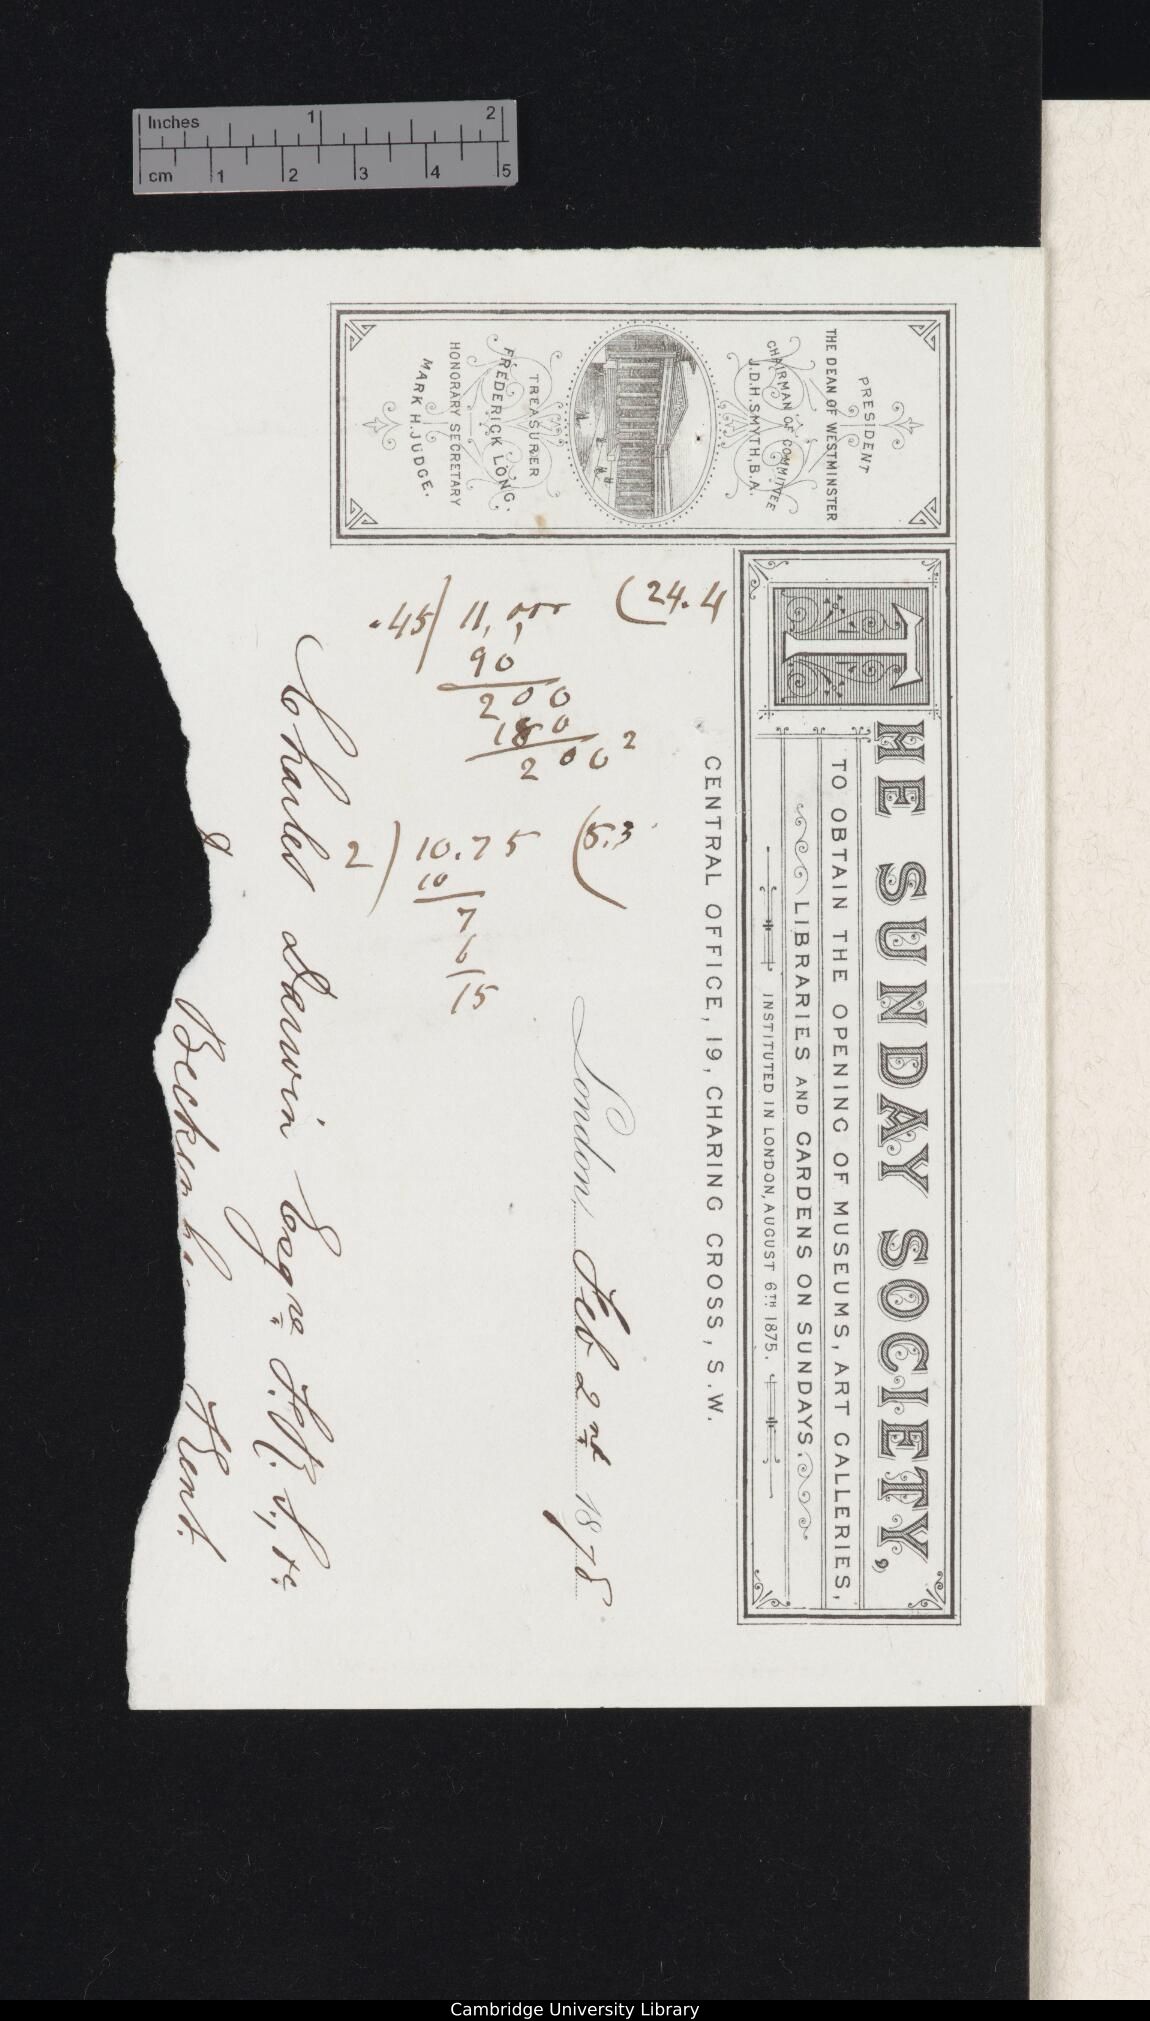 Inches 1 2
cm 1 2 3 4 5
THE SUNDAY SOCIETY,
TO OBTAIN THE OPENING OF MUSEUMS, ART GALLERIES,
LIBRARIES AND GARDENS ON SUNDAYS.
INSTITUTED IN LONDON, AUGUST 6TH 1875.
CENTRAL OFFICE, 19, CHARING CROSS, S.W.
PRESIDENT
THE DEAN OF WESTMINSTER
CHAIRMAN OF COMMITTEE
J.D.H. SMYTH, B.A.
TREASURER
FREDERICK LONG.
HONORARY SECRETARY
MARK H. JUDGE.
London, Feb 2nd 1878
Charles Darwin Esqre F.R.S., &c
Beckenha Kent.
.45) 11,000 (24.4
90
200
180
200 2
2) 10.75 (5.3
10
7
6
15
Cambridge University Library